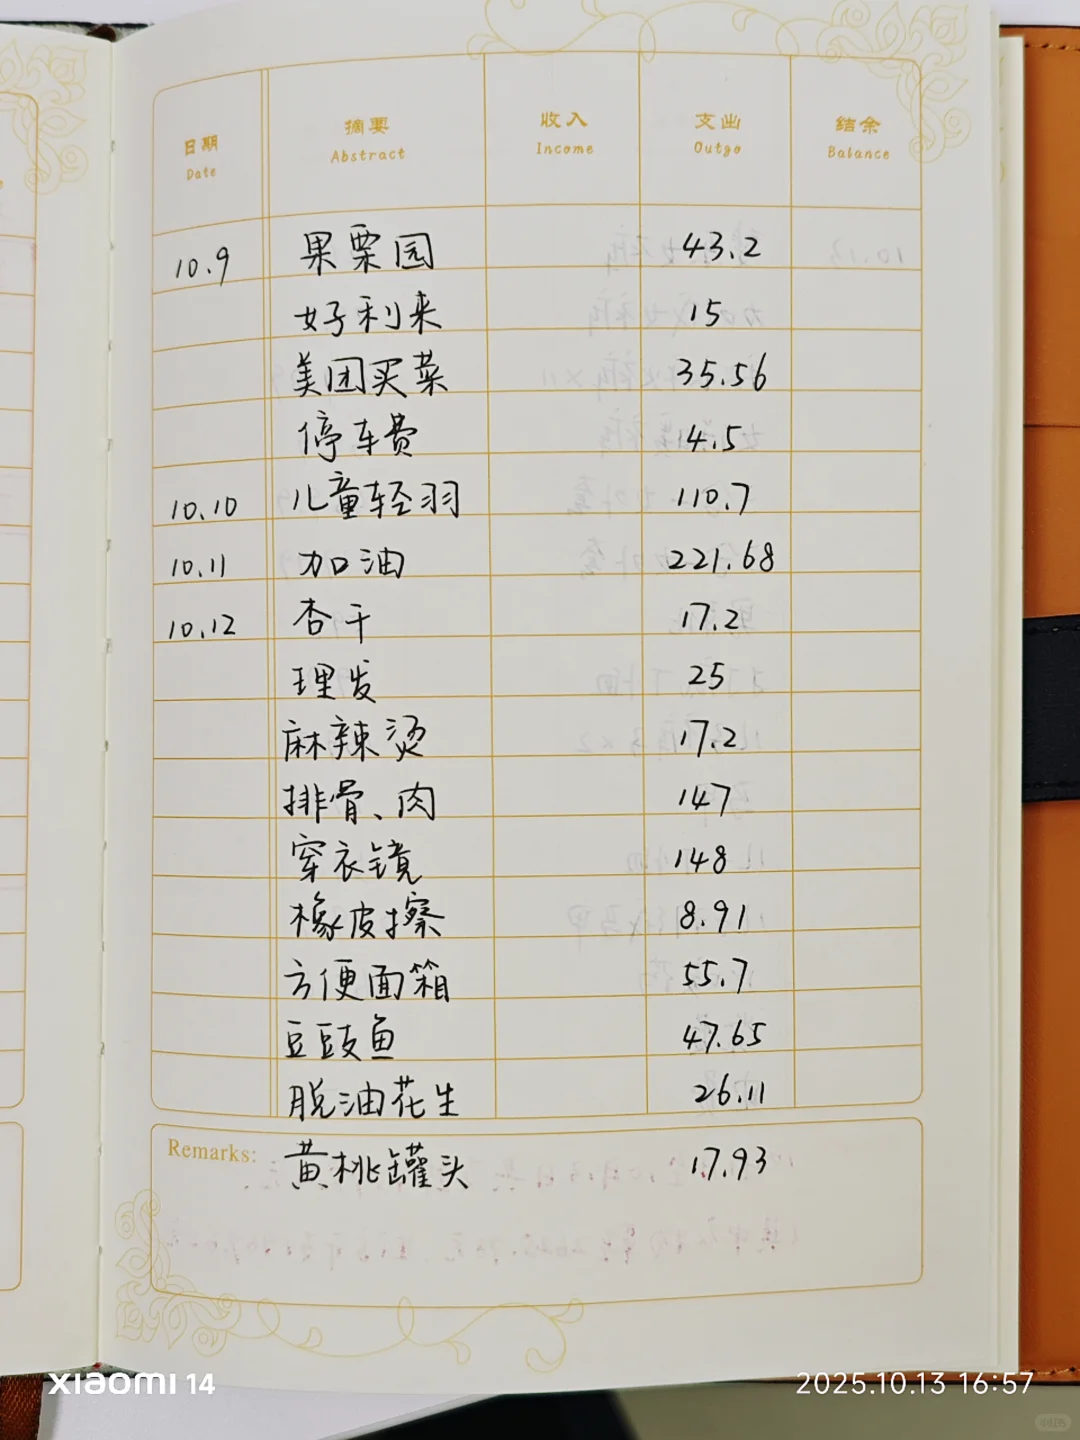 日期 摘要 收入 支出 结余
Date Abstract Income Outgo Balance
10.9 果栗园 43.2
好利来 15
美团买菜 35.56
停车费 14.5
10.10 儿童轻羽 110.7
10.11 加油 221.68
10.12 杏干 17.2
理发 25
麻辣烫 17.2
排骨、肉 147
穿衣镜 148
橡皮擦 8.91
方便面箱 55.7
豆豉鱼 47.65
脱油花生 26.11
Remarks: 黄桃罐头 17.93
xiaomi 14
2025.10.13 16:57